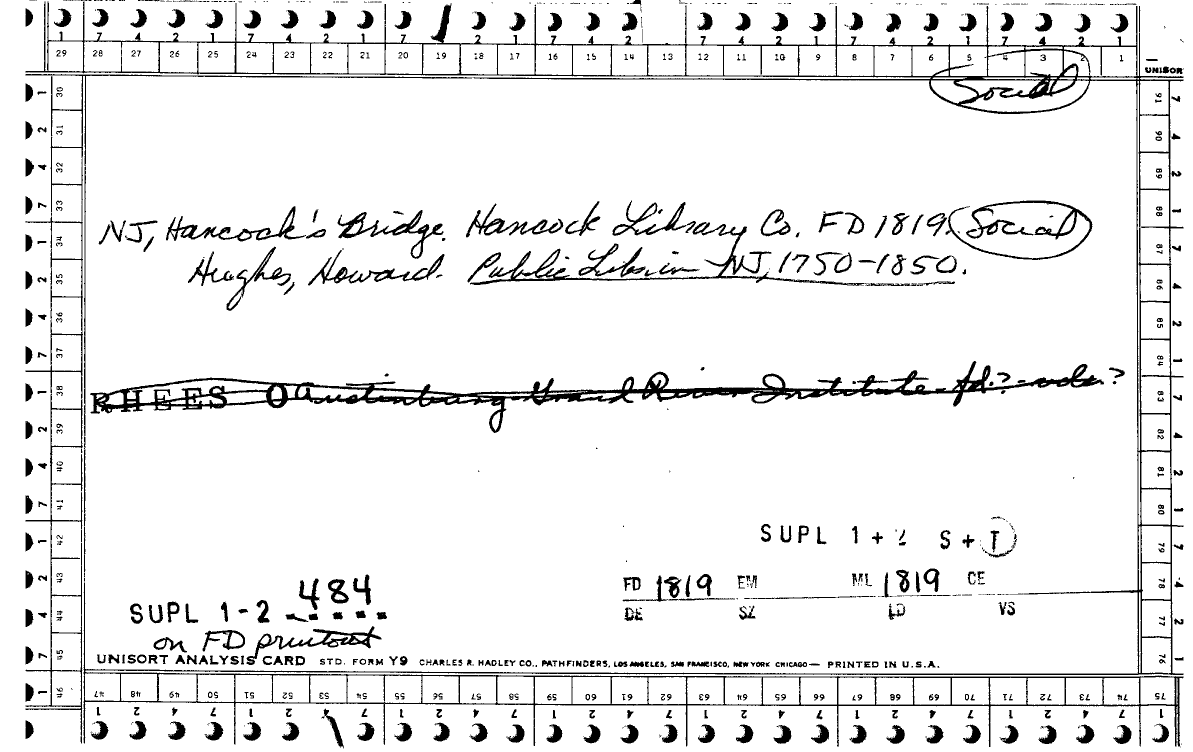 1 7 4 2 1 7 4 2 1 7 2 1 7 4 2 7 4 2 1 7 4 2 1 7 4 2 1
29 28 27 26 25 24 23 22 21 20 19 18 17 16 15 14 13 12 11 10 9 8 7 6 5 4 3 2 1
UNISORT
Social
NJ, Hancock's Bridge. Hancock Library Co. FD 1819. Social
Hughes, Howard. Public Libs in NJ, 1750-1850.
RHEES O Austinburg Grand River Institute fd.? vols.?
SUPL 1+2 S+T
FD 1819 EM ML 1819 CE
DE SZ LD VS
484
SUPL 1-2
on FD printout
UNISORT ANALYSIS CARD STD. FORM Y9 CHARLES R. HADLEY CO., PATHFINDERS, LOS ANGELES, SAN FRANCISCO, NEW YORK CHICAGO — PRINTED IN U.S.A.
30 31 32 33 34 35 36 37 38 39 40 41 42 43 44 45 46
91 90 89 88 87 86 85 84 83 82 81 80 79 78 77 76 75
47 48 49 50 51 52 53 54 55 56 57 58 59 60 61 62 63 64 65 66 67 68 69 70 71 72 73 74